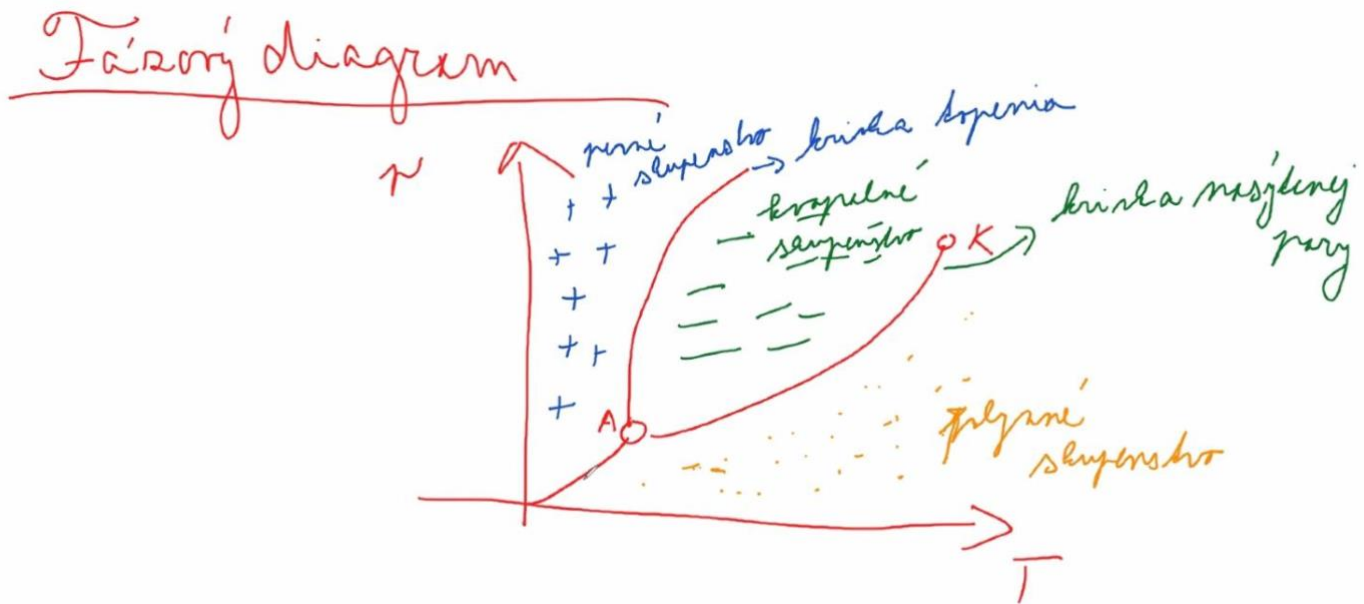 Fázový diagram
p
pevné
skupenstvo
krivka topenia
kvapalné
skupenstvo
K
krivka nasýtenej
pary
A
plynné
skupenstvo
T